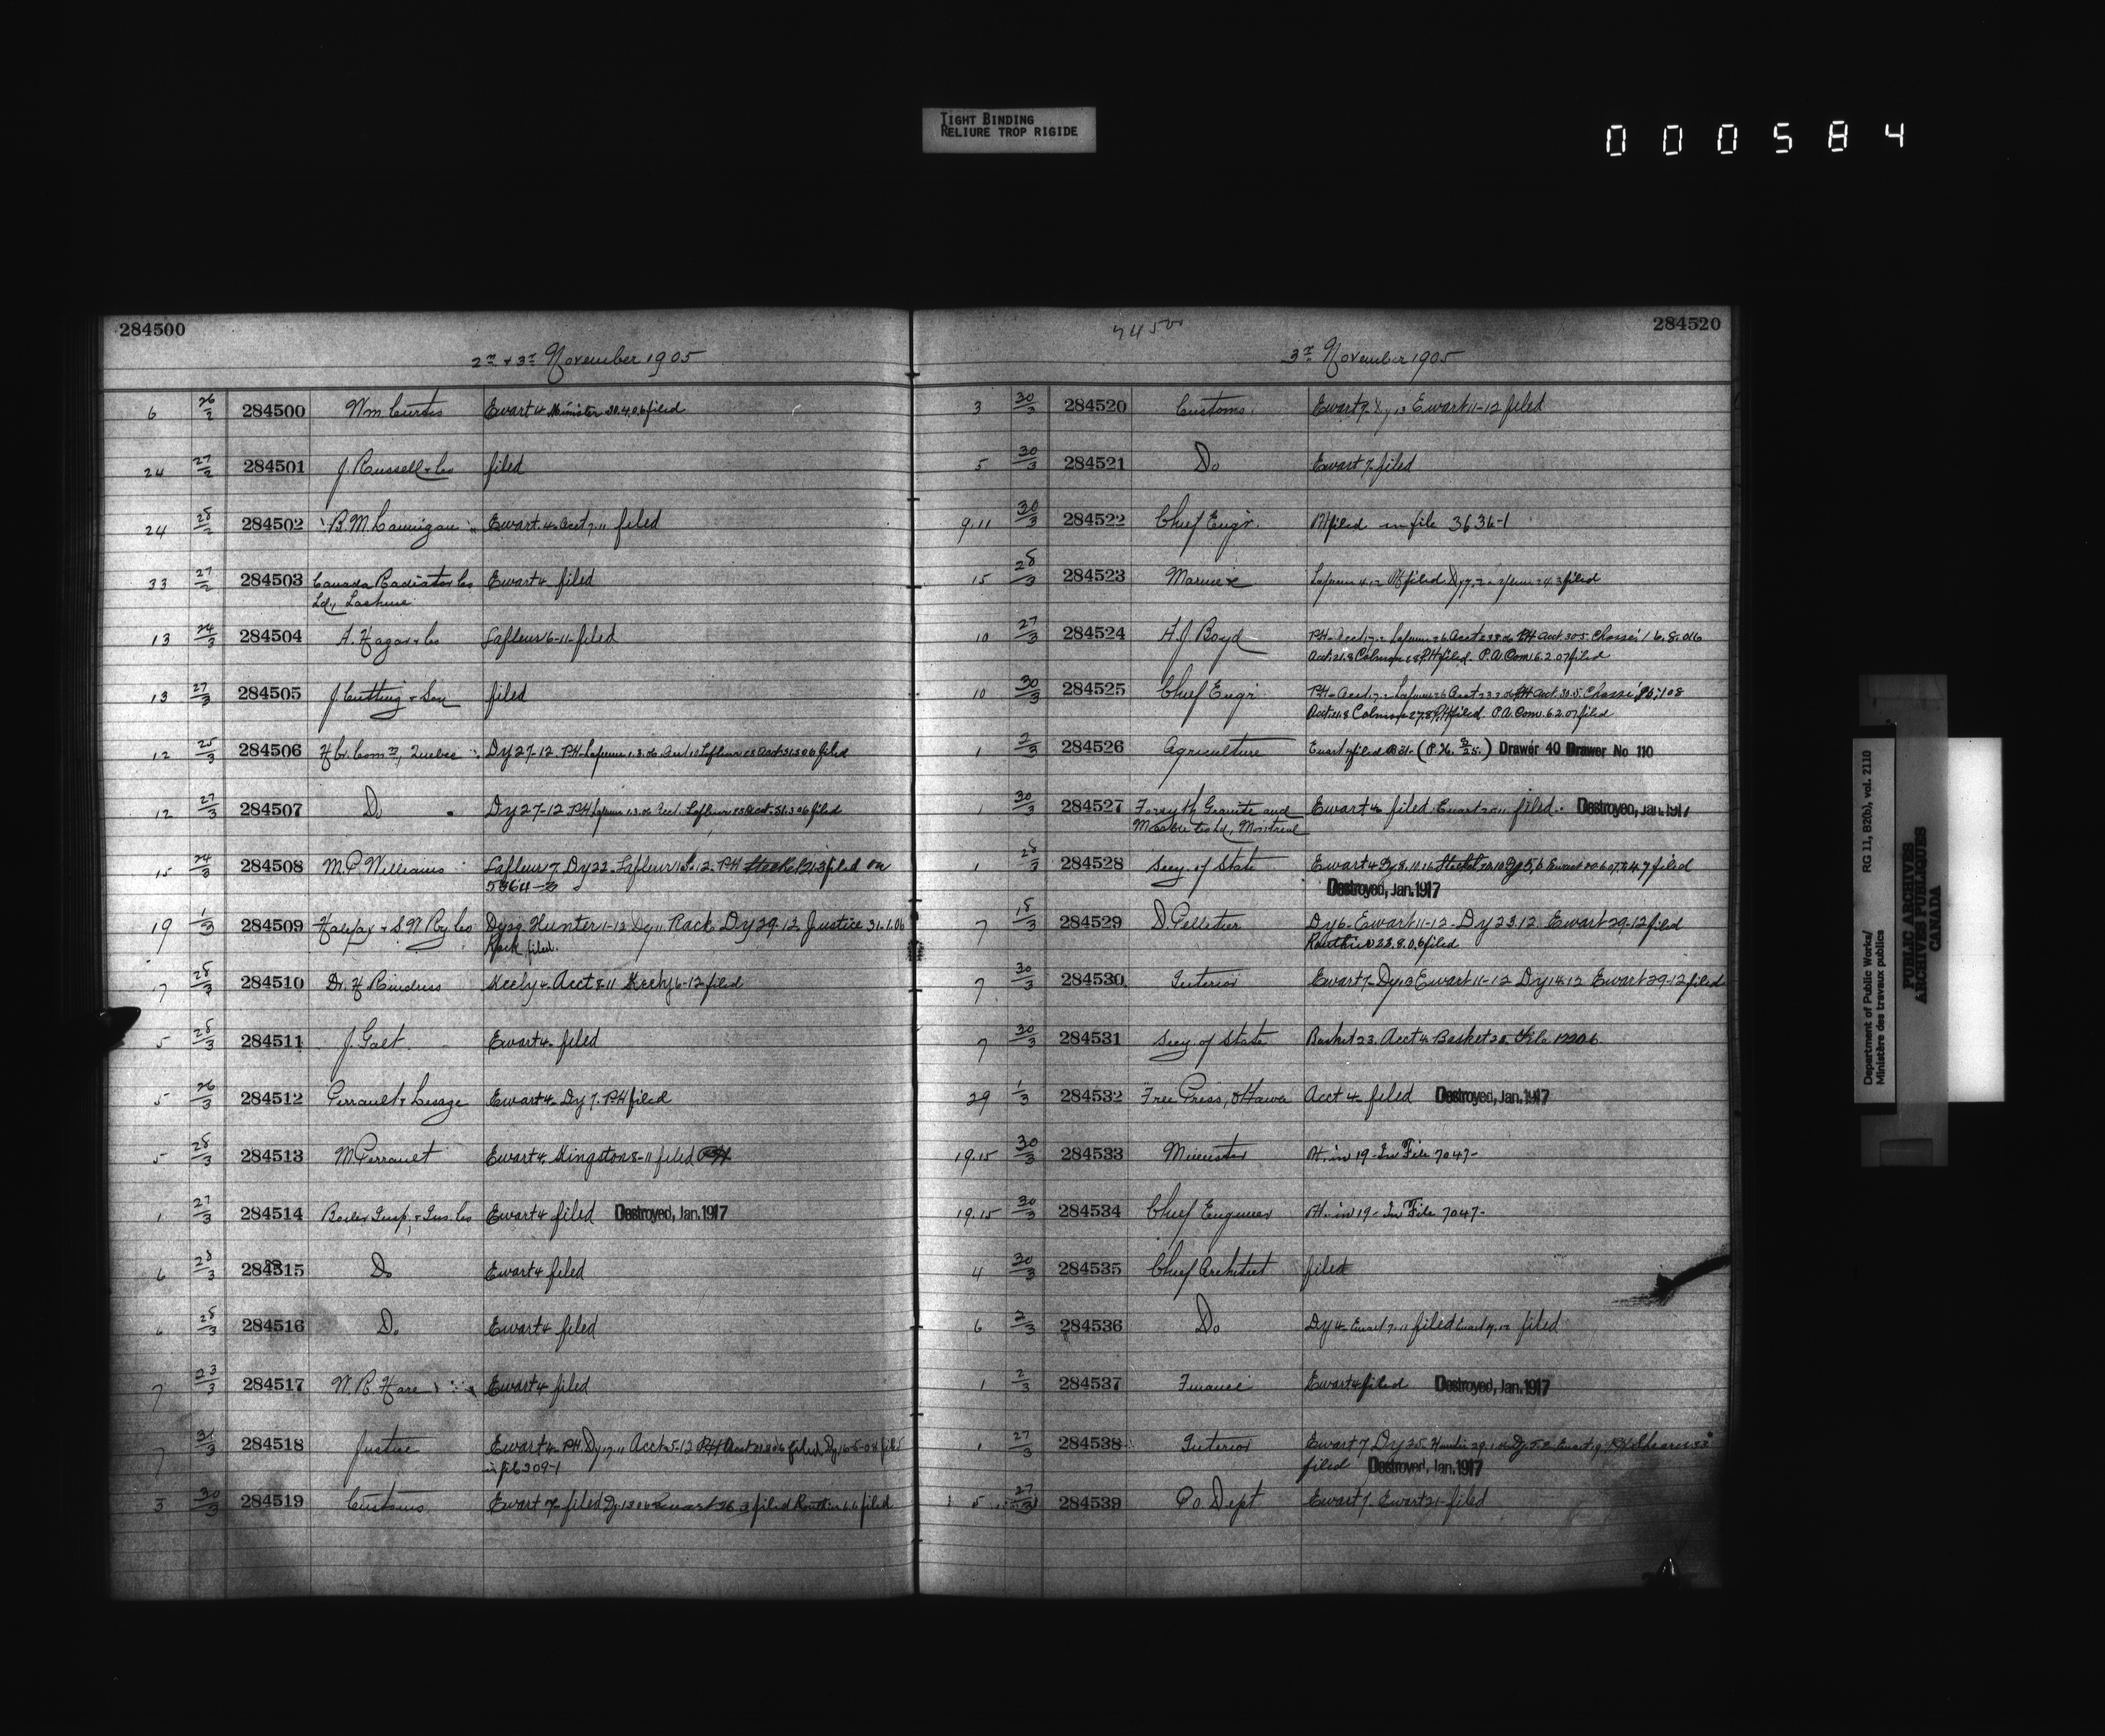 TIGHT BINDING
RELIURE TROP RIGIDE
000584
284500
2nd & 3rd November 1905
6 26/2 284500 Wm Curtis Ewart 4 Minister 30.4.06 filed
24 27/2 284501 J. Russell & Co filed
24 284502 B. M. Ewart 4. Acct 7.11 filed
33 27/2 284503 Canada Radiator Co Ewart 4 filed
Ld, Lachine
13 24/3 284504 A. Hagar & Co Lafleur 6-11- filed
13 27/3 284505 J. Cutting & Son filed
12 25/3 284506 Hbr. Comrs, Quebec Dy 27-12. PH. 1.3.06 filed
12 27/3 284507 Do Dy 27-12 PH 1.3.06 Acct. Lafleur filed
15 24/3 284508 M. P. Williams Lafleur 7. Dy 22. Lafleur 12. PH Steckel 21.3 filed on
5364-3
19 1/3 284509 Halifax & S. W. Ry Co Dy 29 Hunter 1-12 Dy 11 Rack. Dy 29-12. Justice 31.1.06
Rack filed.
7 28/3 284510 Dr. H Keely 4. Acct 8-11 Keely 6-12 filed
5 28/3 284511 J. Galt Ewart 4. filed
5 26/3 284512 Perrault & Lesage Ewart 4. Dy 7. PH filed
5 28/3 284513 M Perrault Ewart 4. Kingston 8-11 filed PH
1 27/3 284514 Boiler Insp. & Ins. Co Ewart 4 filed Destroyed, Jan. 1917
6 28/3 284515 Do Ewart 4 filed
6 28/3 284516 Do Ewart 4 filed
7 23/3 284517 W. R. Hare Ewart 4 filed
7 31/3 284518 Justice Ewart 4. PH. Dy 17.11 Acct 5-12 PH Acct filed
in file 209-1
3 30/3 284519 Customs Ewart 7. filed Ewart 26.3 filed Routhier 6.6 filed
7450
284520
3rd November 1905
3 30/3 284520 Customs Ewart 7. Dy 13 Ewart 11-12 filed
5 30/3 284521 Do Ewart 7 filed
9.11 30/3 284522 Chief Engr. PH filed in file 3636-1
15 28/3 284523 Marine 4.12 PH filed filed
10 27/3 284524 A. J. Boyd PH. Acct PH Acct. 30.5. Chassé 16.8.06
Acct. 21.8 PH filed. P. A. Com. 6.2.07 filed
10 30/3 284525 Chief Engr PH. Acct PH Acct. 30.5. Chassé
Acct. 21.8 PH filed. P. A. Com. 6.2.07 filed
1 2/3 284526 Agriculture Ewart 7 filed Drawer 40 Drawer No 110
1 30/3 284527 Forsyth Granite and Ewart 4 filed. Ewart 20.11 filed. Destroyed, Jan. 1917
Marble Co Ld, Montreal
1 28/3 284528 Secy. of State Ewart 4 Dy 8.10.16 Steckel filed
Destroyed, Jan. 1917
7 18/3 284529 D Pelletier Dy 6. Ewart 11-12. Dy 23.12. Ewart 29-12 filed
Routhier 22.8.06 filed
7 30/3 284530 Interior Ewart 7. Dy 13 Ewart 11-12 Dy 14.12 Ewart 29-12 filed
7 30/3 284531 Secy. of State Basket 23. Acct 4. Basket 20. File 17206
29 1/3 284532 Free Press, Ottawa Acct 4. filed Destroyed, Jan. 1917
19.15 30/3 284533 Minister PH. in 19- In File 7047-
19.15 30/3 284534 Chief Engineer PH. in 19- In File 7047-
4 30/3 284535 Chief Architect filed
6 2/3 284536 Do Dy 4. Ewart 7.11 filed Ewart 7.12 filed
1 2/3 284537 Finance Ewart 4 filed Destroyed, Jan. 1917
1 27/3 284538 Interior Ewart 7 Dy 25. Hunter 29.1.06
filed Destroyed, Jan. 1917
5 27/3 284539 P.O. Dept Ewart 7. Ewart 21 filed
Department of Public Works/ RG 11, B2(b), vol. 2110
Ministère des travaux publics
PUBLIC ARCHIVES
ARCHIVES PUBLIQUES
CANADA